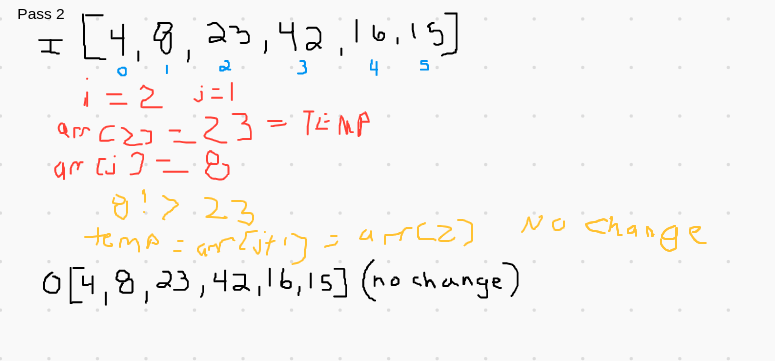 Pass 2
I [4, 8, 23, 42, 16, 15]
0 1 2 3 4 5
i = 2 j = 1
arr[2] = 23 = TEMP
arr[j] = 8
8 !> 23
temp = arr[j+1] = arr[2] No change
O [4, 8, 23, 42, 16, 15] (no change)